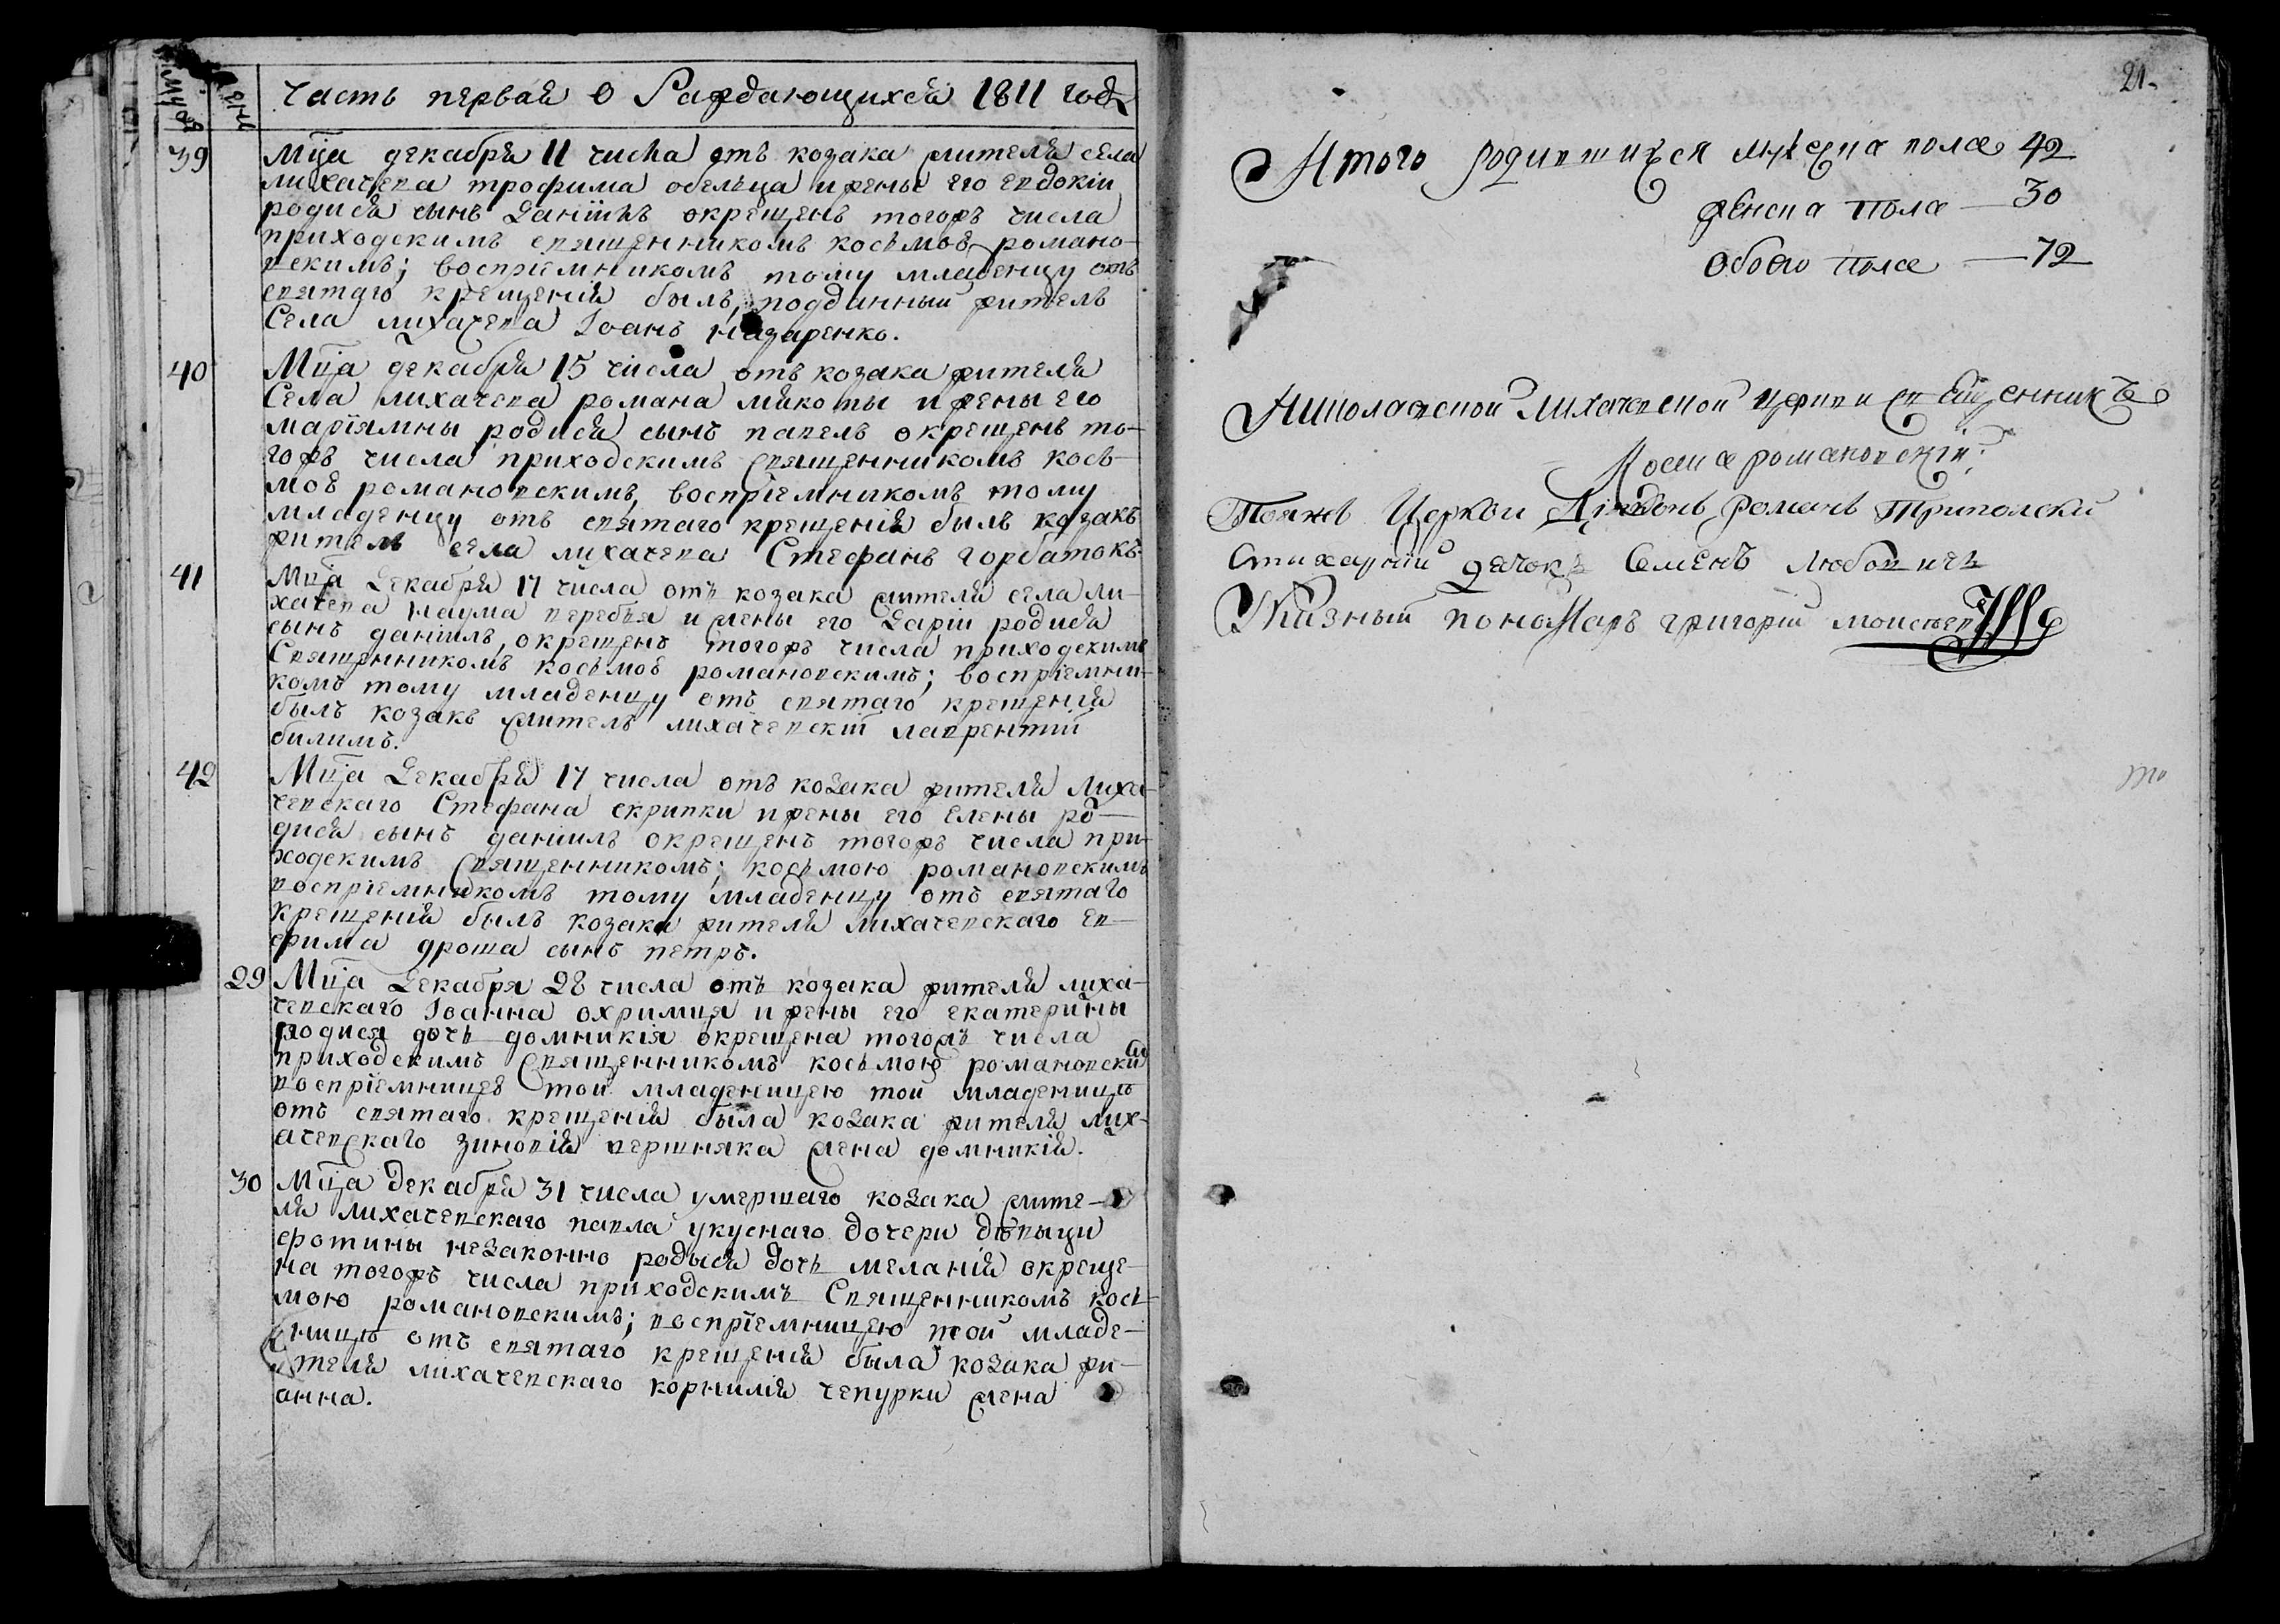 мужеска
женс
Часть первая о Раждающихся 1811 года
39
Мца декабря 11 числа отъ козака жителя села
лихачева трофима обельца и жены его евдокіи
родися сынъ Даніилъ окрещенъ тогожъ числа
приходскимъ священникомъ косьмою романо-
вскимъ; воспріемникомъ тому младенцу отъ
святаго крещенія былъ, подданный житель
Села лихачева Іоанъ Назаренко.
40
Мца декабря 15 числа отъ козака жителя
Села лихачева романа мякоты и жены его
маріямны родися сынъ павелъ окрещенъ то-
гожъ числа приходскимъ священникомъ кось-
мою романовскимъ, воспріемникомъ тому
младенцу отъ святаго крещенія былъ козакъ
житель села лихачева Стефанъ горбатокъ.
41
Мца Декабря 17 числа отъ козака жителя села ли-
хачева наума перебія и жены его Даріи родися
сынъ даніилъ, окрещенъ тогожъ числа приходскимъ
Священникомъ косьмою романовскимъ; воспріемни-
комъ тому младенцу отъ святаго крещенія
былъ козакъ житель лихачевскій лаврентій
билимъ.
42
Мца Декабря 17 числа отъ козака жителя Лиха-
чевскаго Стефана скрипки и жены его Елены ро-
дися сынъ даніилъ окрещенъ тогожъ числа при-
ходскимъ Священникомъ; косьмою романовскимъ
воспріемникомъ тому младенцу отъ святаго
крещенія былъ козака жителя лихачевскаго ев-
фима дроша сынъ петръ.
29
Мца Декабря 28 числа отъ козака жителя лиха-
чевскаго Іоанна охримця и жены его екатерины
родися дочь домникія окрещена тогожъ числа
приходскимъ Священникомъ косьмою романовским
воспріемницею той младеницею той младеницѣ
отъ святаго крещенія была козака жителя лих-
ачевскаго зиновія першняка жена домникія.
30
Мца декабря 31 числа умершаго козака жите-
ля лихачевскаго павла укуснаго дочери дѣвыци
фотины незаконно родыся дочь меланія окреще-
на тогожъ числа приходскимъ Священникомъ кось-
мою романовскимъ; воспріемницею той младе-
ницѣ отъ святаго крещенія была козака жи-
теля лихачевскаго корнилія чепурки жена
анна.
21.
Итого родившихся мужеска пола 42
женска пола — 30
обоего пола — 72
Николаевской Лихачевской церкви священникъ
Косма романовскій:
Тояжъ Церкви Діяконъ романъ Триполски
Стихарній дячокъ Семенъ Любовичъ
Указный пономаръ григорій моисеев